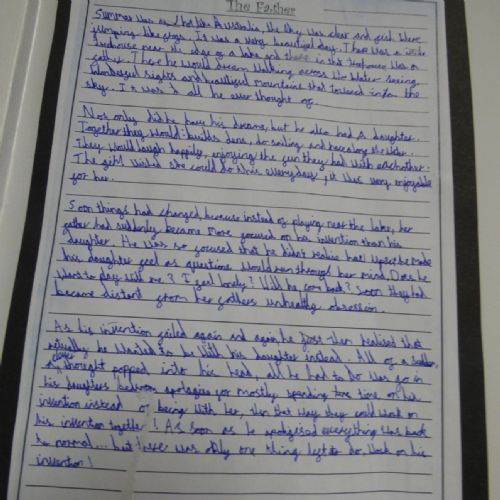 The Father
Summer was as hot like Australia, the sky was clear and fish were
jumping like frogs. It was a very beautiful day. There was a little
treehouse near the edge of a lake and there in that treehouse was a
father. There he would dream walking across the water seeing
wonderful sights and beautiful mountains that towered into the
sky. It was all he ever thought of.
Not only did he have his dreams, but he also had a daughter.
Together they would builds dens, do sailing and race along the water.
They would laugh happily, enjoying the fun they had with eachother.
The girl wished she could do this everyday, it was very enjoyable
for her.
Soon things had changed because instead of playing near the lake, her
father had suddenly became more focused on his invention than his
daughter. He was so focused that he didn't realise how upset he made
his daughter feel as questions would run through her mind. Does he
want to play with me? I feel lonely? Will he come back? Soon they had
became distant from her fathers unhealthy obsession.
As his invention failed again and again, he just then realised that
actually he wanted to be with his daughter instead. All of a sudden,
a clever thought popped into his head. All he had to do was go in
his daughters bedroom apologise for mostly spending time on his
invention instead of being with her, then that way they could work on
his invention together! As soon as he apologised everything was back
to normal... but there was only one thing left to do. Work on his
invention!